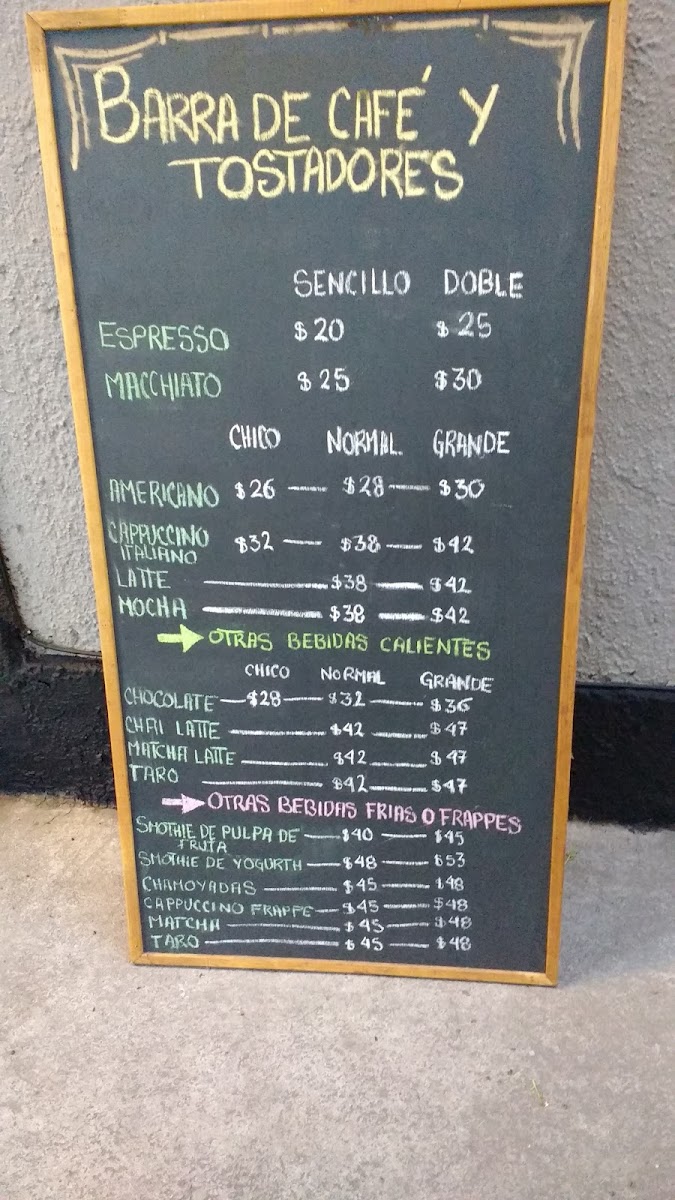 BARRA DE CAFÉ Y
TOSTADORES
SENCILLO DOBLE
ESPRESSO $20 $25
MACCHIATO $25 $30
CHICO NORMAL GRANDE
AMERICANO $26 — $28 — $30
CAPPUCCINO
ITALIANO $32 — $38 — $42
LATTE — $38 — $42
MOCHA — $38 — $42
→ OTRAS BEBIDAS CALIENTES
CHICO NORMAL GRANDE
CHOCOLATE — $28 — $32 — $36
CHAI LATTE — $42 — $47
MATCHA LATTE — $42 — $47
TARO — $42 — $47
→ OTRAS BEBIDAS FRIAS O FRAPPES
SMOTHIE DE PULPA DE — $40 — $45
FRUTA
SMOTHIE DE YOGURTH — $48 — $53
CHAMOYADAS — $45 — $48
CAPPUCCINO FRAPPE — $45 — $48
MATCHA — $45 — $48
TARO — $45 — $48